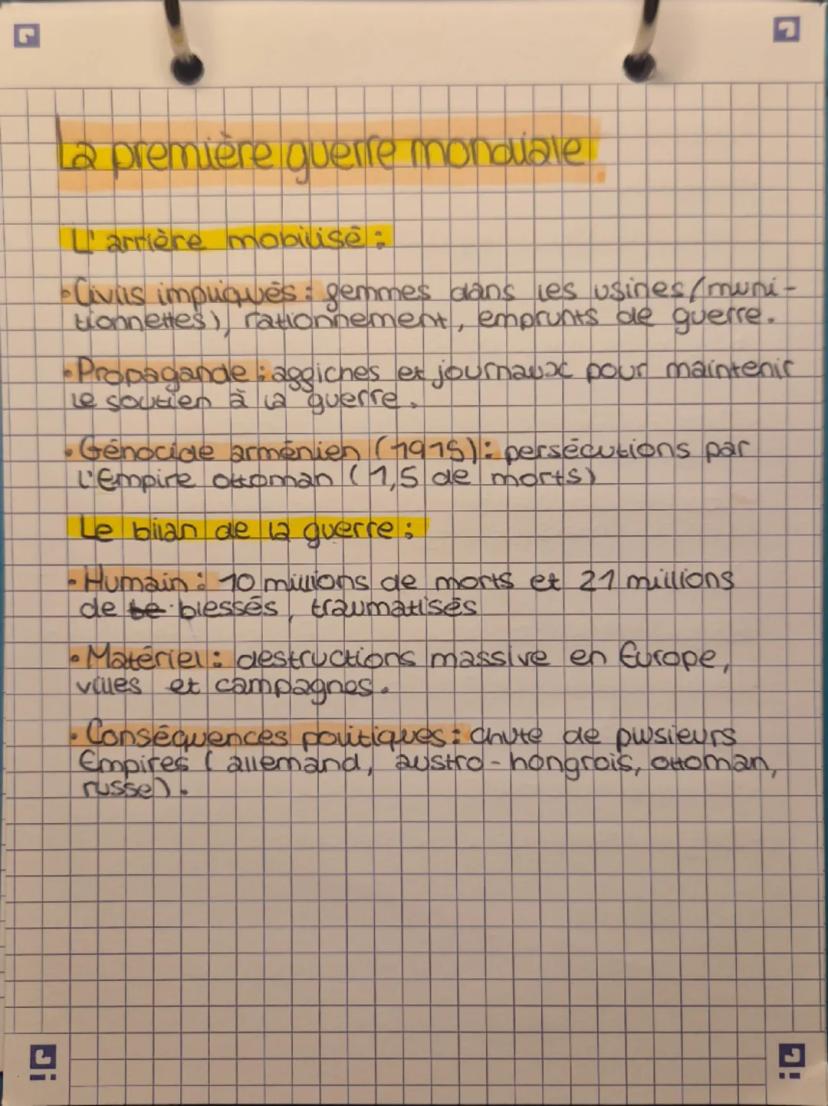 La première guerre mondiale
L'arrière mobilisé :
• Civils impliqués : gemmes dans les usines (muni-
tionnettes), rationnement, emprunts de guerre.
• Propagande : aggiches et journaux pour maintenir
le soutien à la guerre.
• Génocide arménien (1915) : persécutions par
l'Empire ottoman (1,5 de morts)
Le bilan de la guerre :
• Humain : 10 millions de morts et 21 millions
de be blessés, traumatisés
• Matériel : destructions massive en Europe,
villes et campagnes.
• Conséquences politiques : chute de plusieurs
Empires (allemand, austro-hongrois, ottoman,
russe).